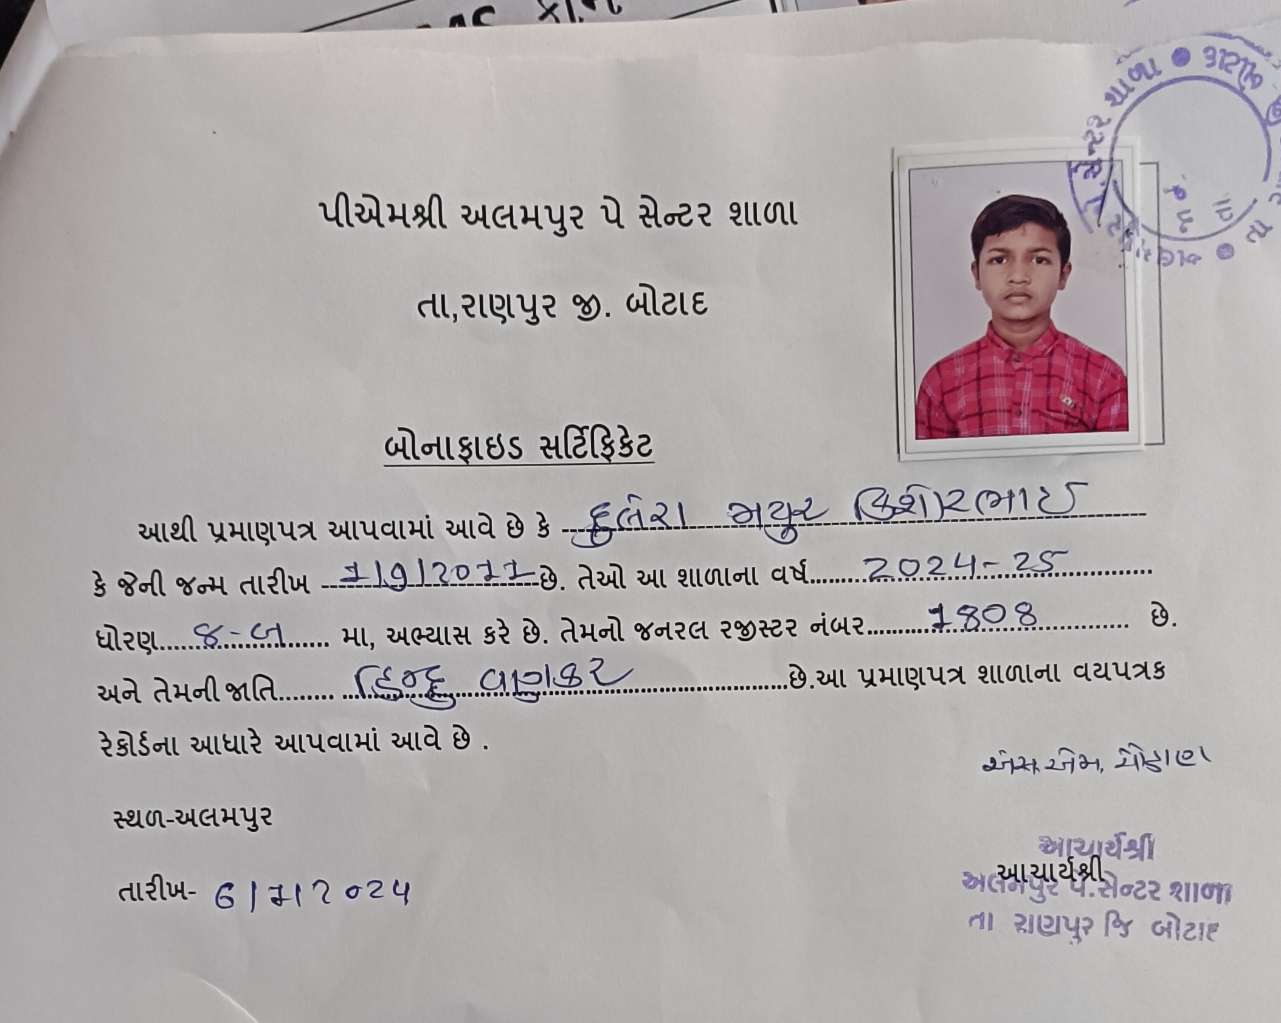 પીએમશ્રી અલમપુર પે સેન્ટર શાળા
તા,રાણપુર જી. બોટાદ
બોનાફાઇડ સર્ટિફિકેટ
આથી પ્રમાણપત્ર આપવામાં આવે છે કે મયુર કિશોરભાઈ
કે જેની જન્મ તારીખ 1/9/2011 છે. તેઓ આ શાળાના વર્ષ 2024-25
ધોરણ 8-બ મા, અભ્યાસ કરે છે. તેમનો જનરલ રજીસ્ટર નંબર 1808 છે.
અને તેમની જાતિ હિન્દુ વણકર છે.આ પ્રમાણપત્ર શાળાના વયપત્રક
રેકોર્ડના આધારે આપવામાં આવે છે .
એમ, ચૌહાણ
સ્થળ-અલમપુર
આચાર્યશ્રી
આચાર્યશ્રી
તારીખ- 6/7/2024
અલમપુર પે.સેન્ટર શાળા
તા રાણપુર જિ બોટાદ